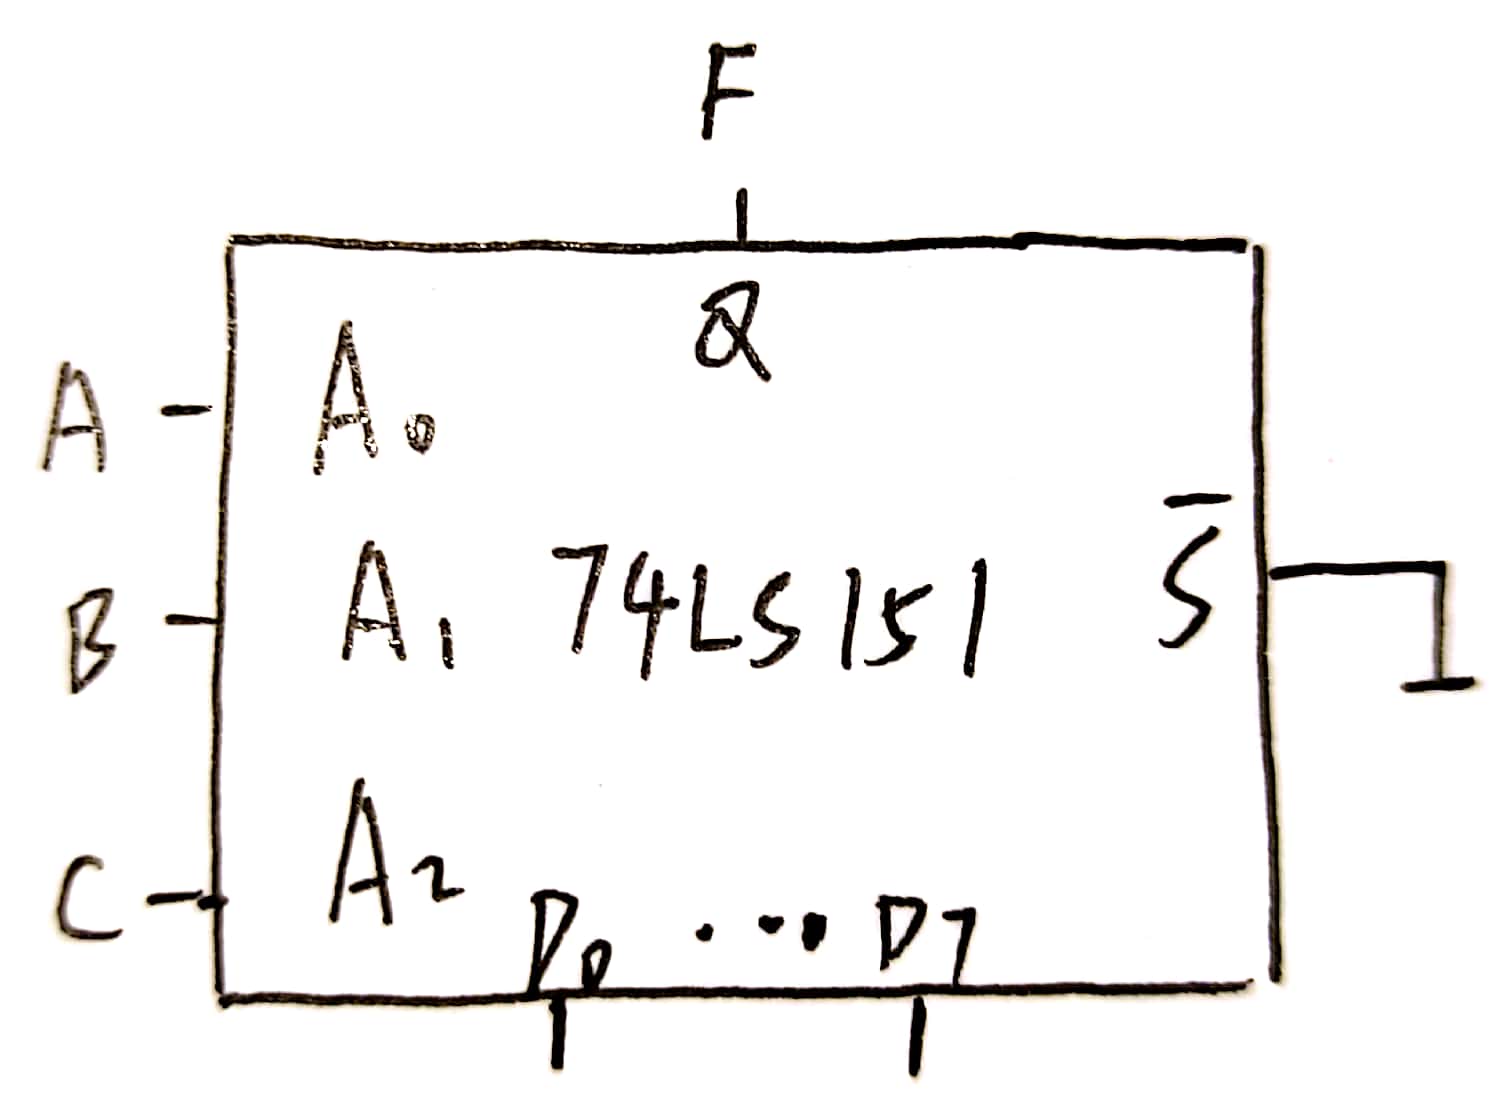 F
Q
A A₀
B A₁ 74LS151 S̅
C A₂
D₀ ... D7